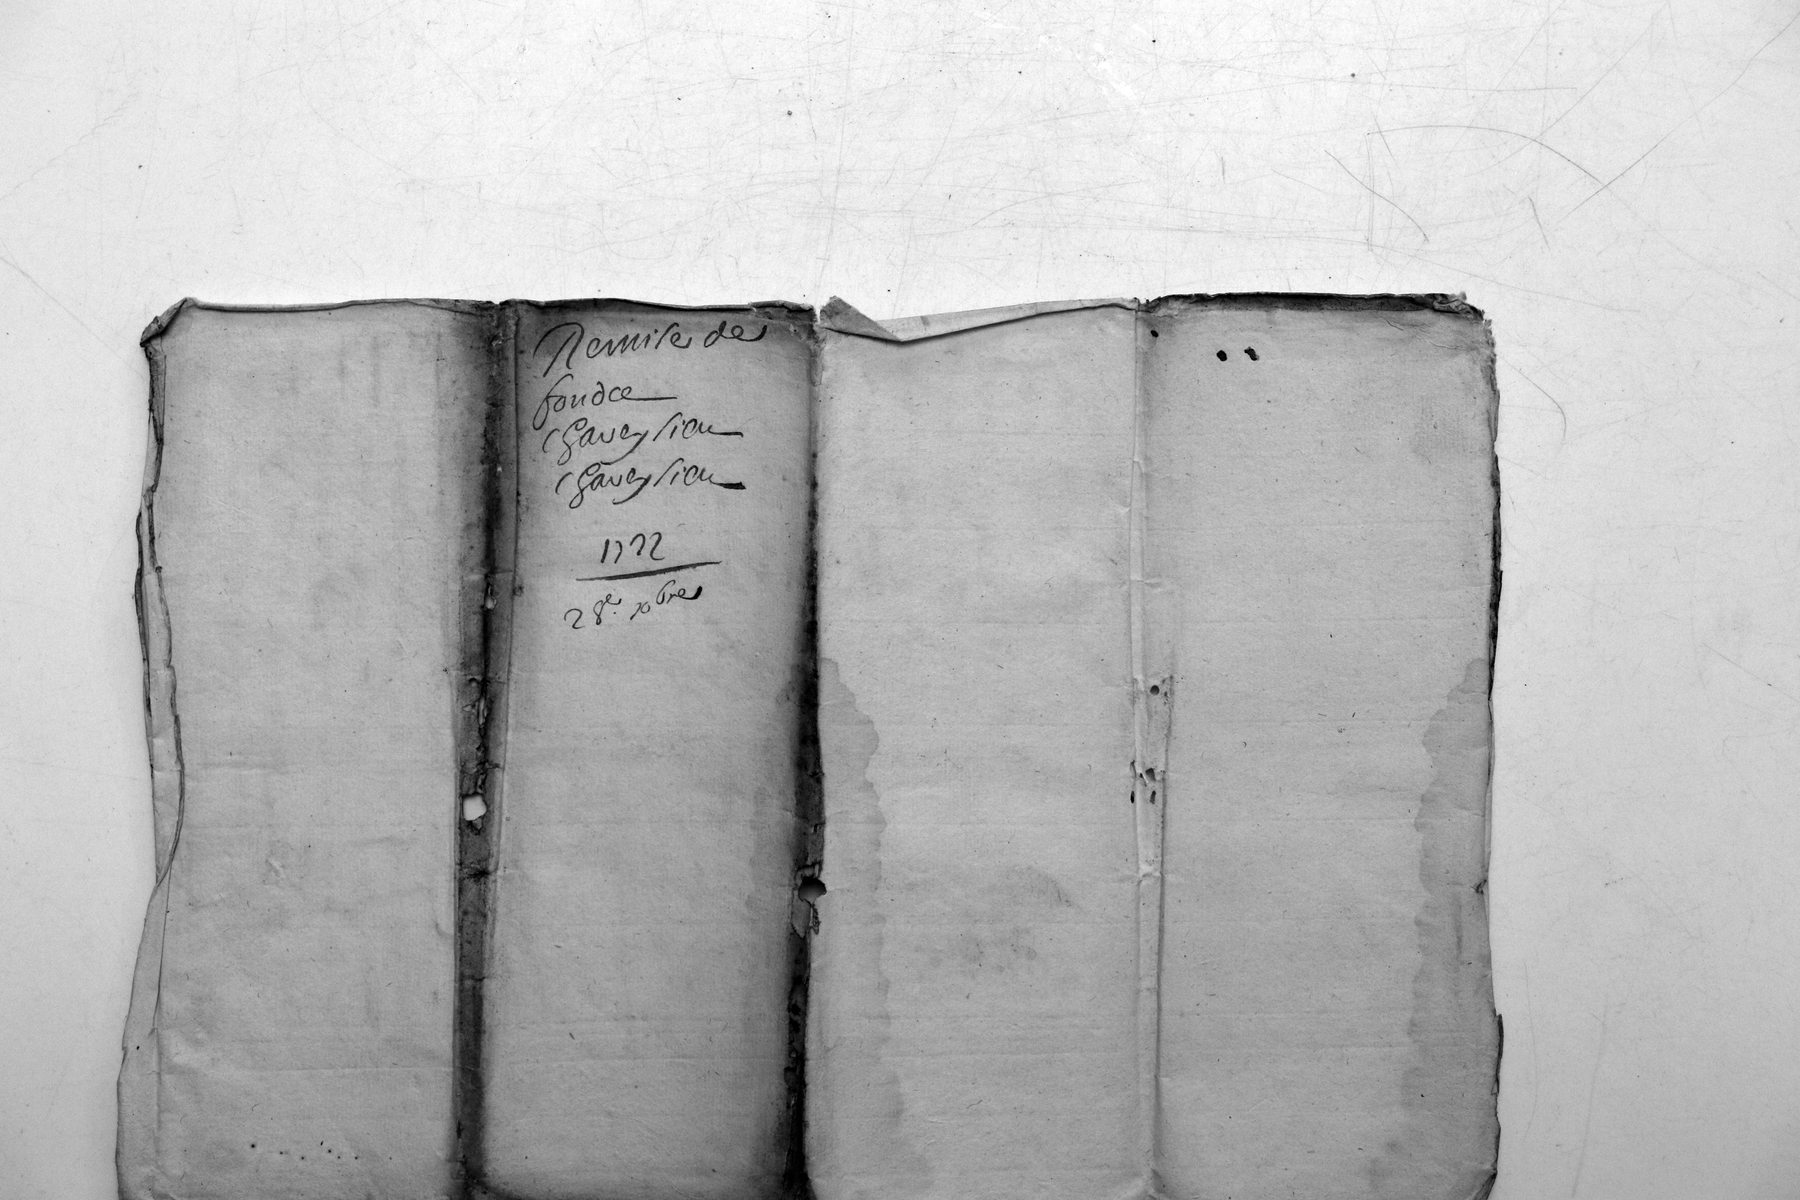 Remise de
fondce
Chaveysieu
Chaveysieu
1722
28e. xbre